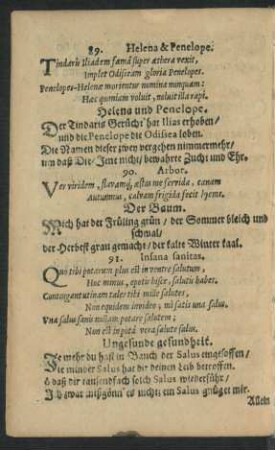 89. Helena & Penelope.
Tindaris Iliadem famâ super æthera vexit,
Implet Odisseam gloria Penelopes.
Penelopes-Helenæ morientur nomina nunquam:
Hæc quoniam voluit, noluit illa rapi.
Helena und Penelope.
Der Tindaris Gerücht hat Ilias erhoben/
und die Penelope die Odissea loben.
Die Namen dieser zwey vergehen nimmermehr/
um daß Die/ Jene nicht/ bewahrte Zucht und Ehr.
90. Arbor.
Ver viridem, flavamq́, æstus me fervida, canam
Autumnus, calvam frigida fecit hyems.
Der Baum.
Mich hat der Früling grün/ der Sommer bleich und
schwal/
der Herbest grau gemacht/ der kalte Winter kaal.
91. Insana sanitas.
Qui tibi potarum plus est in ventre salutum,
Hoc minus, epotis hisce, salutis habes.
Contingant utinam tales tibi mille salutes,
Non equidem invideo; mî satis una salus.
Una salus sanis nullam potare salutem;
Non est in pota vera salute salus.
Ungesunde gesundheit.
Je mehr du hast in Bauch der Salus eingesoffen/
Die minder Salus hat dir deinen Leib betroffen.
daß dir tausendfach solch Salus wiederführ/
nichts; ein Salus gnüget mir.
Allein